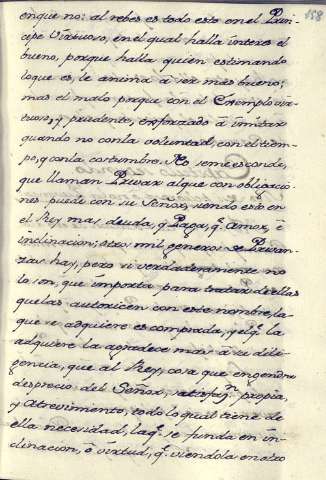 158
enque no: al rebes es todo esto en el Prin-
cipe Virtuoso, en el qual halla interes el
bueno, porque halla quien estimando
loque es, le anima à ser mas bueno;
mas el malo porque con el Exemplo vir-
tuoso, y prudente, es forzado à imitar
quando no con la voluntad, con el tiem-
po, y con la costumbre. No se me esconde,
que llaman Privar al que con obligacio-
nes puede con su Señor, siendo esto en
el Rey mas deuda, y Paga, q.e Amor, è
inclinacion; otros mil generos de Privan-
zas hay, pero si verdaderamente no
lo son, que importa para tratar de ellas
que las autoricen con este nombre, la
que se adquiere es comprada, y el q.e la
adquiere la agradece mas à su dili-
gencia, que al Rey, cosa que engendra
desprecio del Señor, propia,
y Atrevimiento, todo lo qual tiene de
ella necesidad, la q.e se funda en in-
clinacion, è virtud, q.e viendola en alto